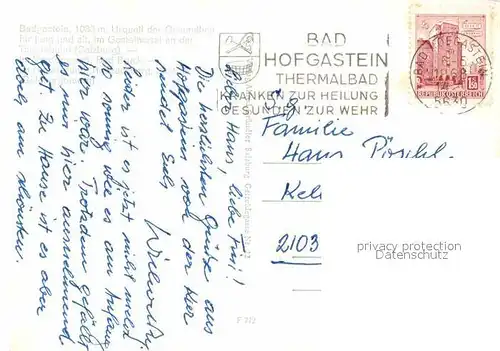 Badgastein, 1083 m, Urquell der Gesundheit
für jung und alt, im Gasteinertal an der
Tauernbahn (Salzburg). —
BAD
HOFGASTEIN
THERMALBAD
KRANKEN ZUR HEILUNG
GESUNDEN ZUR WEHR
BAD HOFGASTEIN
5630
REPUBLIK ÖSTERREICH
Familie
Hans
2103
privacy protection
Datenschutz
F 7/2
Hans, liebe
Die herzlichsten Grüße aus
Hofgastein von der Hier
sendet Euch
Leider ist es jetzt nicht mehr
so sonnig wie es am Anfang
hier war. Trotzdem gefällt
es uns hier ausnehmend
gut. Zu Hause ist es aber
doch am schönsten.